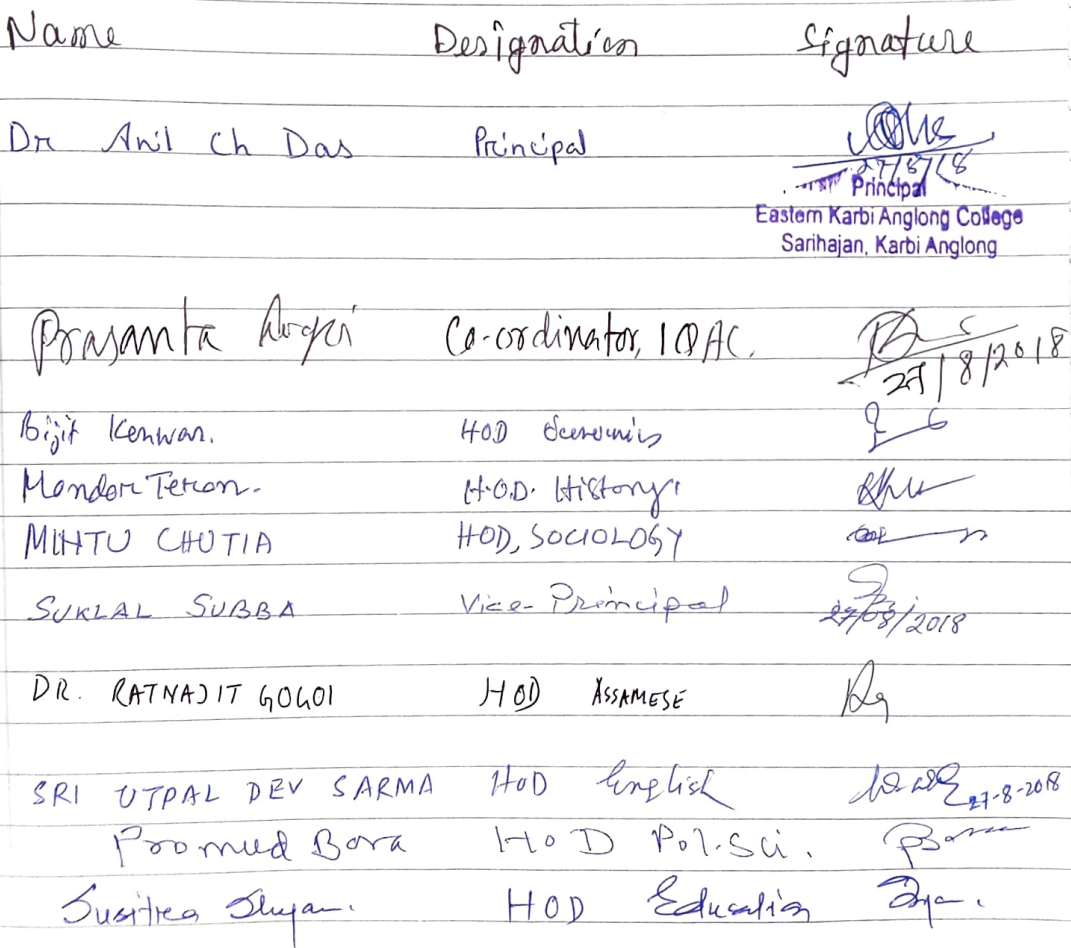 Name Designation Signature
Dr Anil Ch Das Principal
27/8/18
Principal
Eastern Karbi Anglong College
Sarihajan, Karbi Anglong
Prasanta Co-ordinator, IQAC.
27/8/2018
Bijit Kenwar. HOD Economics
Mondor Teron. H.O.D. History
MINTU CHUTIA HOD, SOCIOLOGY
SUKLAL SUBBA Vice-Principal
27/08/2018
DR. RATNAJIT GOGOI HOD ASSAMESE
SRI UTPAL DEV SARMA HoD English
27-8-2018
Promud Bora HoD Pol.Sci.
HOD Education